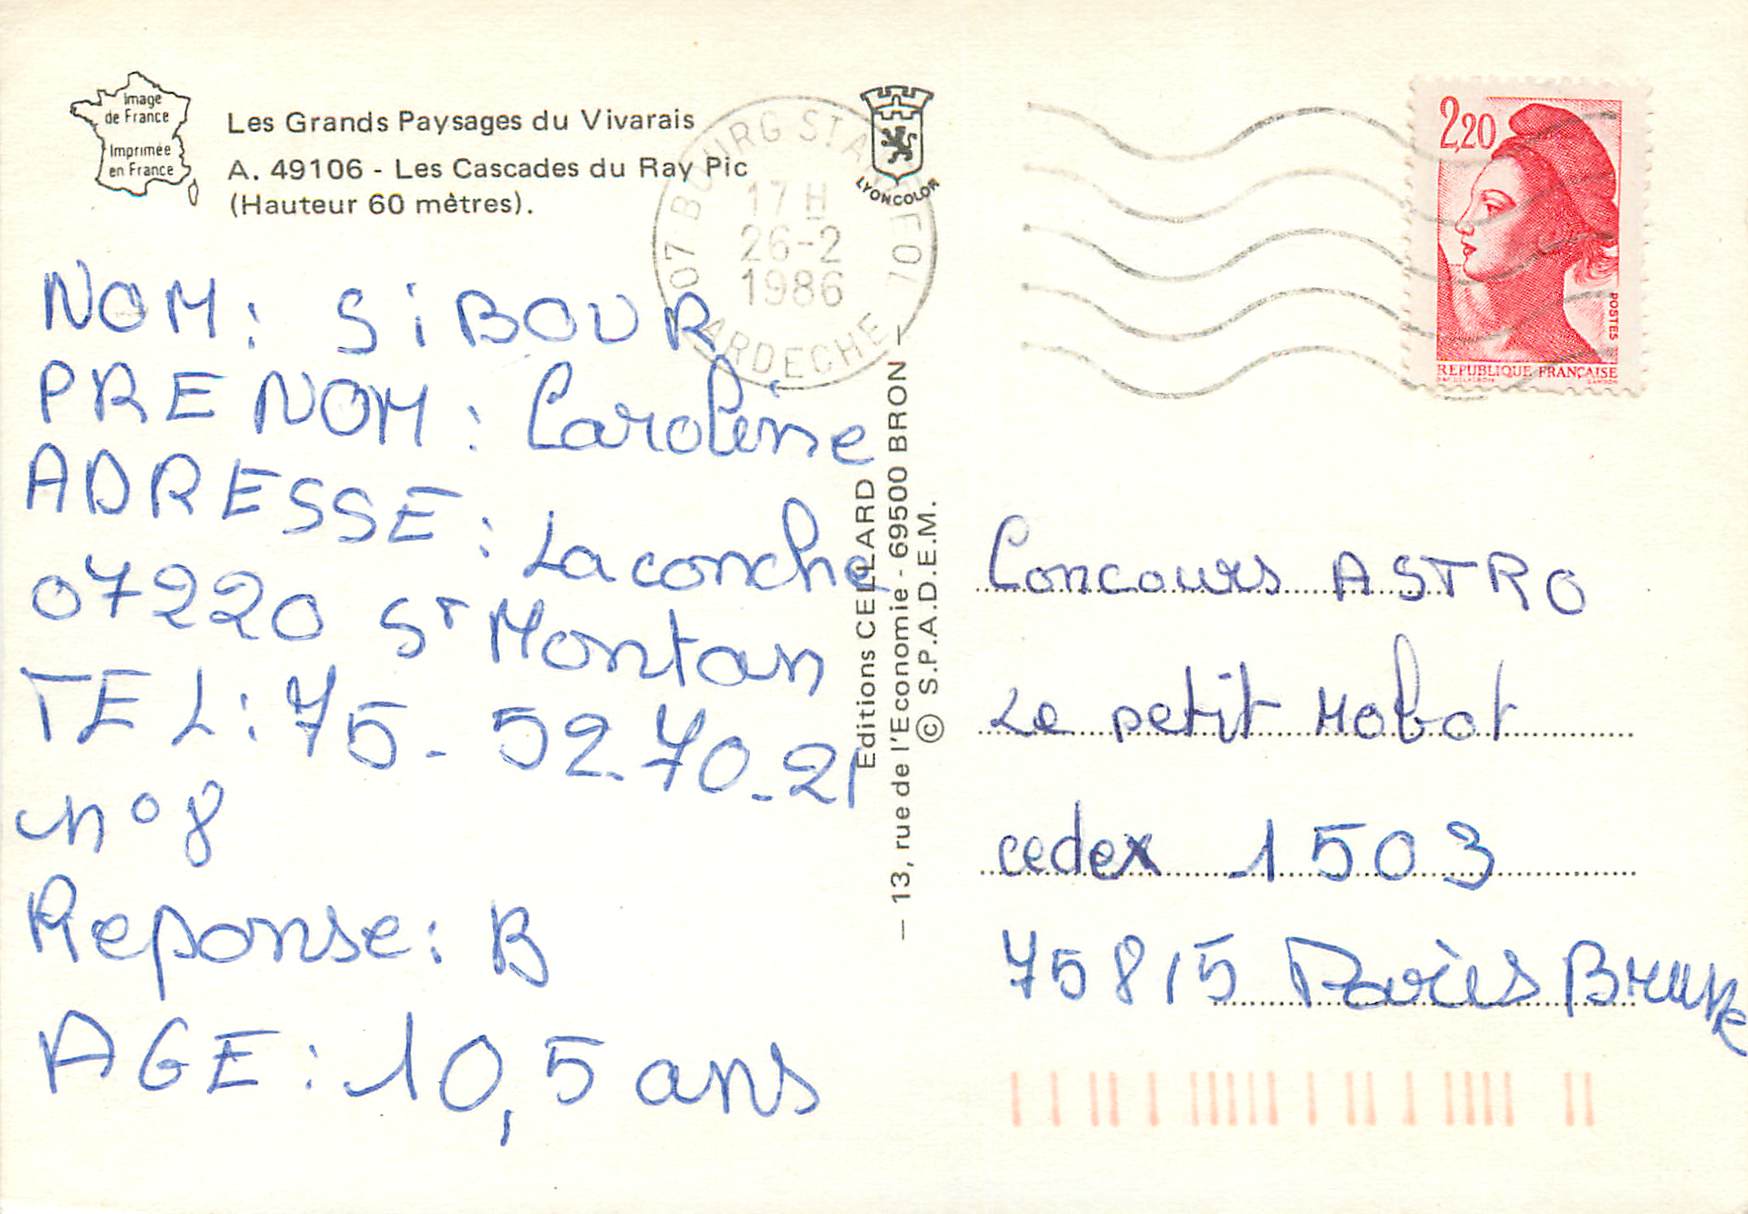 Image
de France
Imprimée
en France
Les Grands Paysages du Vivarais
A. 49106 - Les Cascades du Ray Pic
(Hauteur 60 mètres).
LYONCOLOR
07 BOURG ST A F 07
17 H
26-2
1986
ARDECHE
2,20
POSTES
REPUBLIQUE FRANÇAISE
NOM : SiBOUR
PRENOM : Caroline
ADRESSE : Laconche
07220 ST Montan
TEL : 75-52.70-21
n° 8
Reponse : B
AGE : 10,5 ans
Editions CELLARD
— 13, rue de l'Economie - 69500 BRON —
© S.P.A.D.E.M.
Concours ASTRO
Le petit Mobot
cedex 1503
75815 Paris Brune